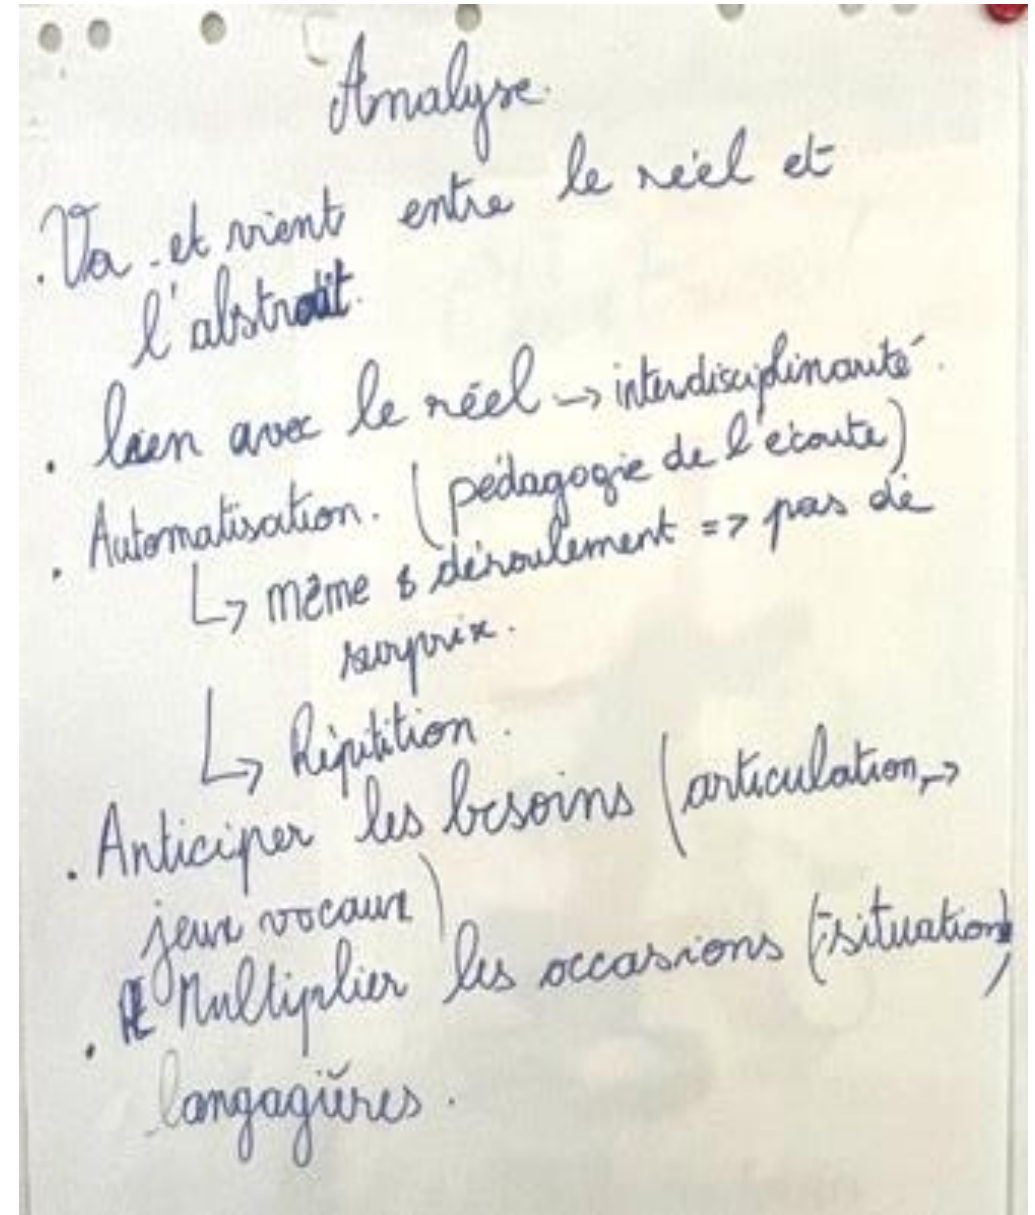 Analyse.
. Va-et vient entre le réel et
l'abstrait.
. lien avec le réel → interdisciplinarité.
. Automatisation. (pédagogie de l'écoute)
↳ même déroulement => pas de
surprise.
↳ Répitition.
. Anticiper les besoins (articulation, →
jeux vocaux)
. Multiplier les occasions (situation)
langagières.